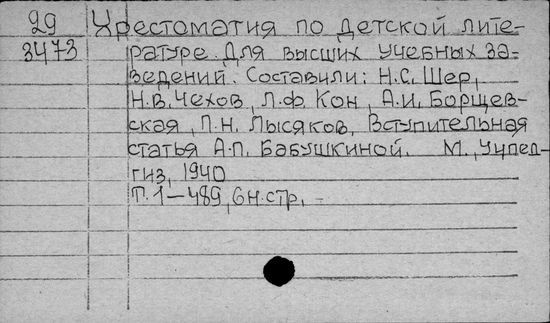 29 Хрестоматия по детской лите-
3473 ратуре. Для высших учебных за-
ведений. Составили: Н.С. Шер,
Н.В. Чехов, Л.Ф. Кон, А.И. Борщев-
ская, П.Н. Лысяков, Вступительная
статья А.П. Бабушкиной. М., Учпед-
гиз, 1940
Т. 1-489, 6 н. стр. -